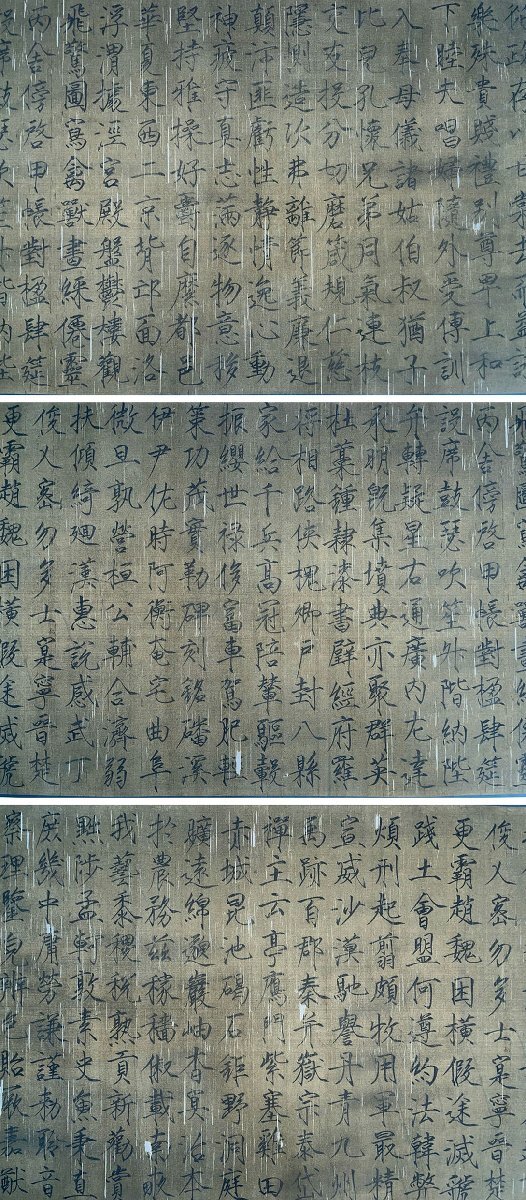 從政存以甘棠去而益詠
樂殊貴賤禮別尊卑上和
下睦夫唱婦隨外受傅訓
入奉母儀諸姑伯叔猶子
比兒孔懷兄弟同氣連枝
交友投分切磨箴規仁慈
隱惻造次弗離節義廉退
顛沛匪虧性靜情逸心動
神疲守真志滿逐物意移
堅持雅操好爵自縻都邑
華夏東西二京背邙面洛
浮渭據涇宮殿盤鬱樓觀
飛驚圖寫禽獸畫綵僊靈
丙舍傍啓甲帳對楹肆筵
設席鼓瑟吹笙升階納陛
飛驚圖寫禽獸畫綵僊靈
丙舍傍啓甲帳對楹肆筵
說席鼓瑟吹笙升階納陛
弁轉疑星右通廣內左達
承明既集墳典亦聚群英
杜藁鍾隸漆書壁經府羅
將相路俠槐卿戶封八縣
家給千兵高冠陪輦驅轂
振纓世祿侈富車駕肥輕
策功茂實勒碑刻銘磻溪
伊尹佐時阿衡奄宅曲阜
微旦孰營桓公輔合濟弱
扶傾綺迴漢惠說感武丁
俊乂密勿多士寔寧晉楚
更霸趙魏困橫假途滅虢
俊乂密勿多士寔寧晉楚
更霸趙魏困橫假途滅虢
踐土會盟何遵約法韓弊
煩刑起翦頗牧用軍最精
宣威沙漠馳譽丹青九州
禹跡百郡秦并嶽宗泰岱
禪主云亭鴈門紫塞雞田
赤城昆池碣石鉅野洞庭
曠遠綿邈巖岫杳冥治本
於農務茲稼穡俶載南畝
我藝黍稷稅熟貢新勸賞
黜陟孟軻敦素史魚秉直
庶幾中庸勞謙謹勑聆音
察理鑒皃辨色貽厥嘉猷